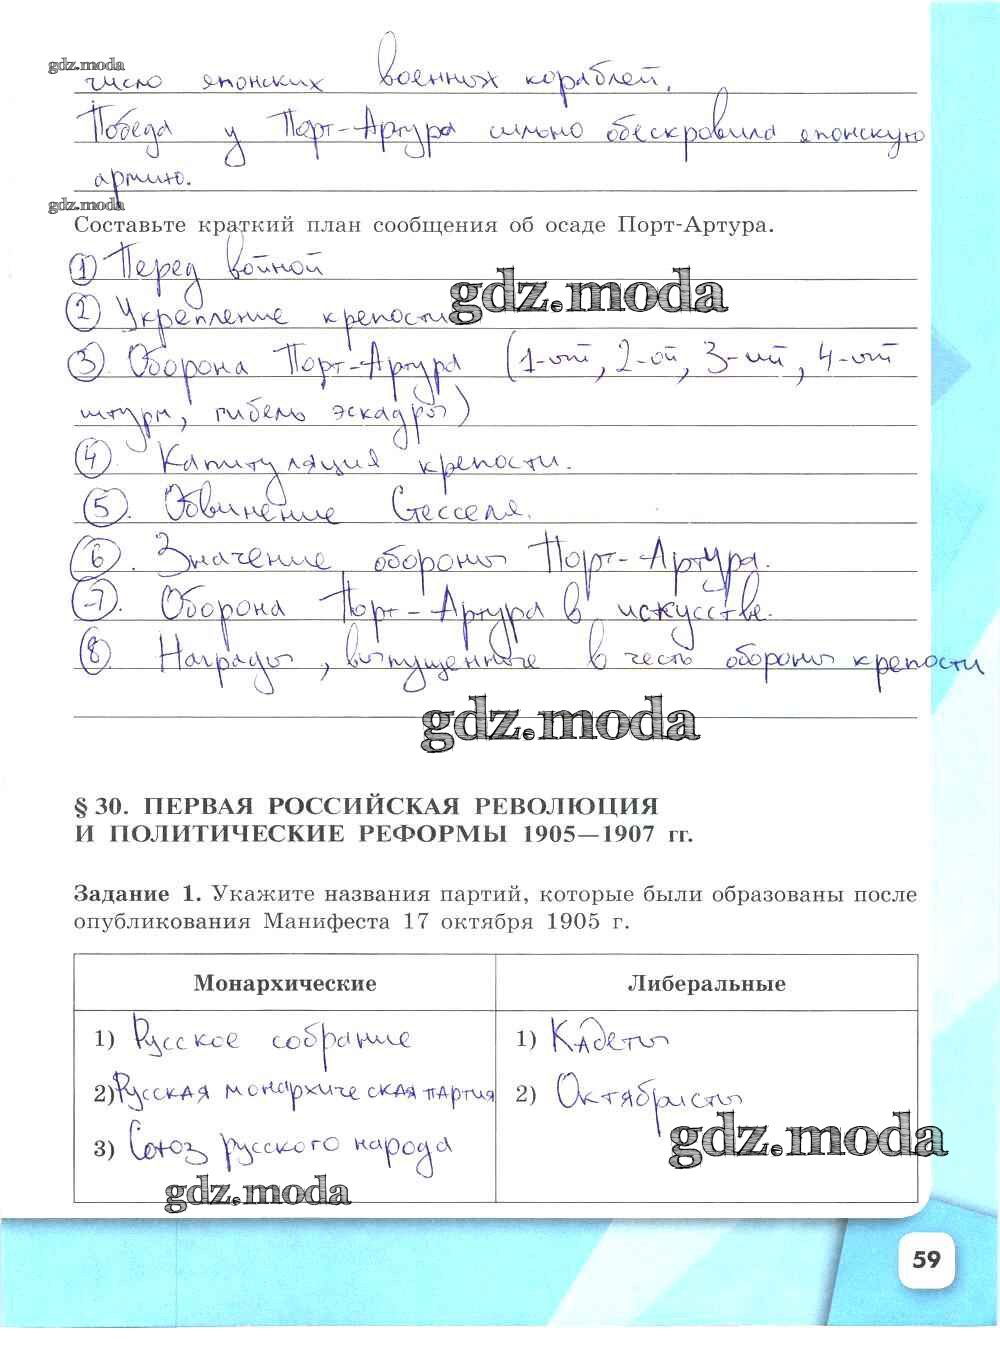 gdz.moda
число японских военных кораблей.
Победа у Порт-Артура сильно обескровила японскую
армию.
gdz.moda
Составьте краткий план сообщения об осаде Порт-Артура.
1) Перед войной
gdz.moda
2) Укрепление крепости
3) Оборона Порт-Артура (1-ый, 2-ой, 3-ий, 4-ый
штурм, гибель эскадры)
4. Капитуляция крепости.
5. Обвинение Стесселя.
6. Значение обороны Порт-Артура.
7. Оборона Порт-Артура в искусстве.
8. Награды, выпущенные в честь обороны крепости
gdz.moda
§ 30. ПЕРВАЯ РОССИЙСКАЯ РЕВОЛЮЦИЯ
И ПОЛИТИЧЕСКИЕ РЕФОРМЫ 1905—1907 гг.
Задание 1. Укажите названия партий, которые были образованы после
опубликования Манифеста 17 октября 1905 г.
Монархические
1) Русское собрание
2) Русская монархическая партия
3) Союз русского народа
Либеральные
1) Кадеты
2) Октябристы
gdz.moda
gdz.moda
59